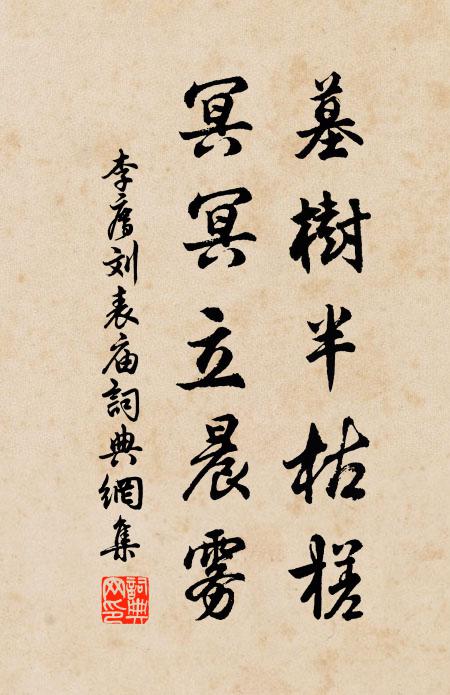 墓樹半枯槎
冥冥立晨雾
李廌刘表庙詞典網集
詞典网印